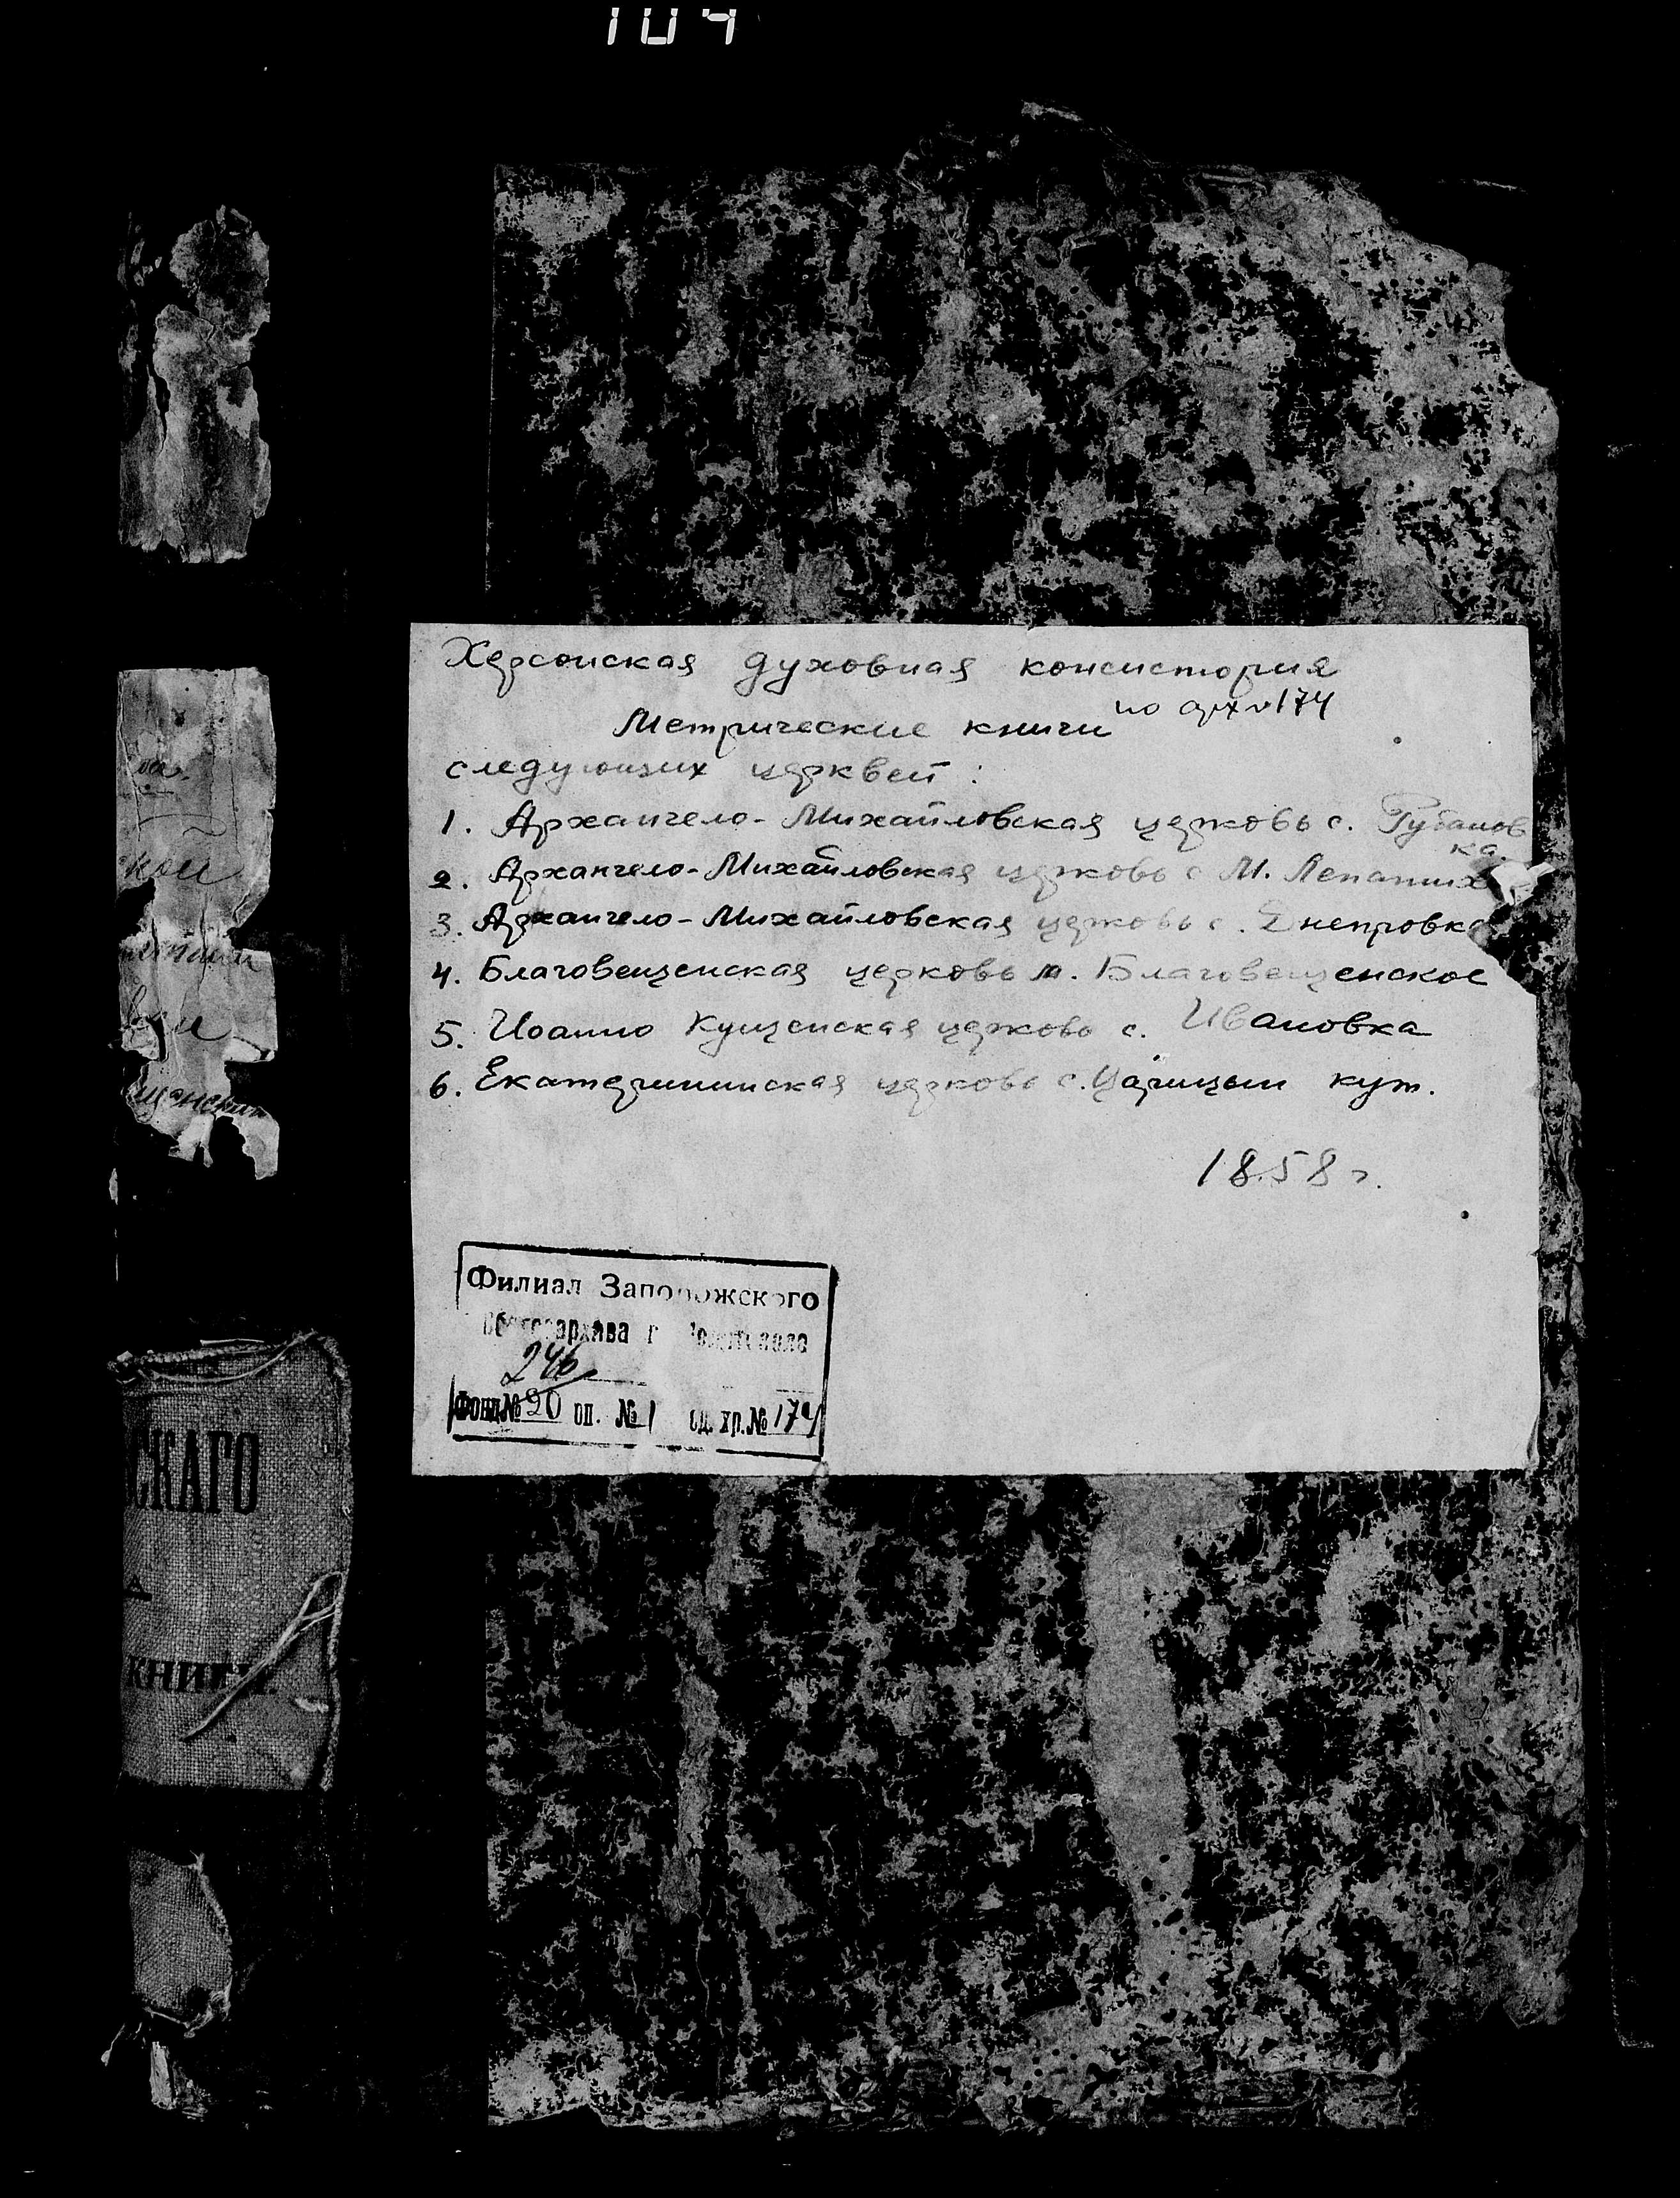 104
Херсонская духовная консистория
Метрические книги по арх № 174
следующих церквей:
1. Архангело-Михайловская церковь с. Рубанов
ка.
2. Архангело-Михайловская церковь с М. Лепатиха
3. Архангело-Михайловская церковь с. Днепровка
4. Благовещенская церковь м. Благовещенское
5. Иоанно Кущенская церковь с. Ивановка
6. Екатерининская церковь с. Царицын кут.
1858 г.
Филиал Запорожского
облгосархива г
246
Фонд № 20 оп. № 1 ед. хр. № 174
ской
СКАГО
КНИГ